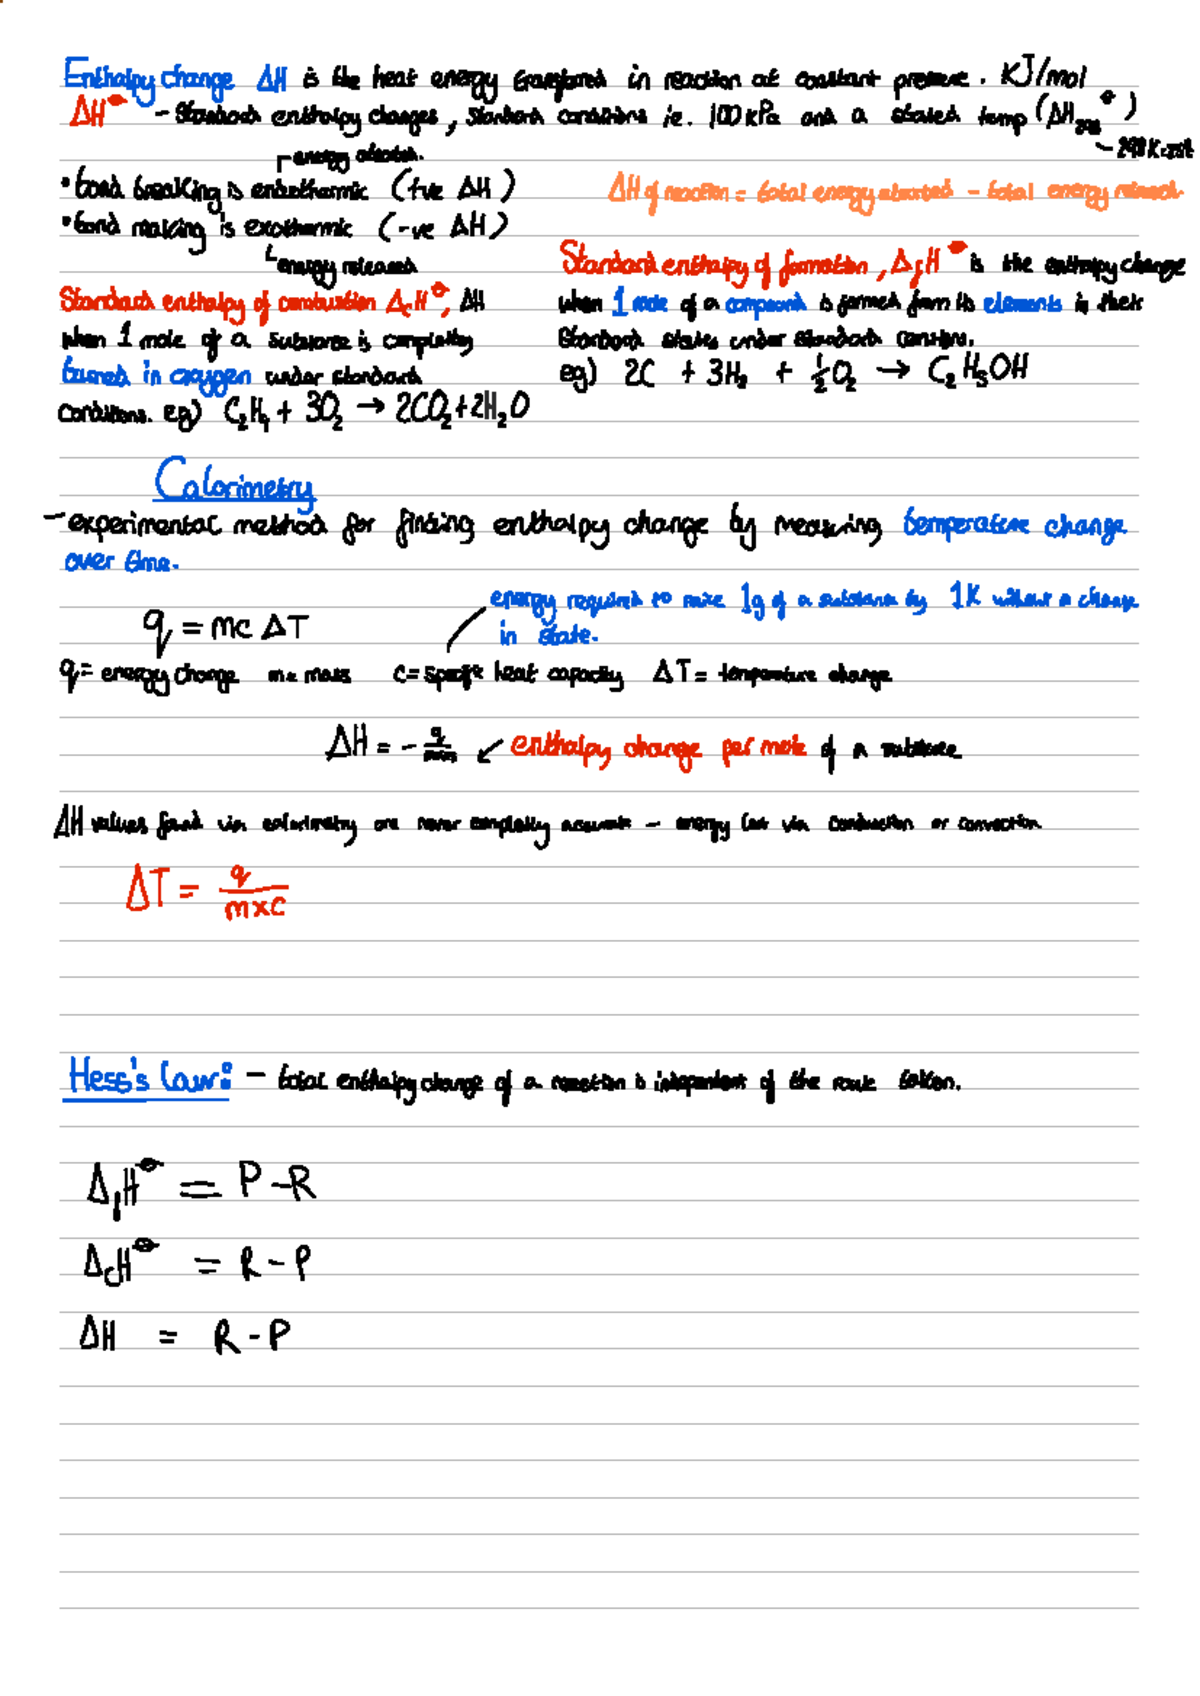 Enthalpy change ΔH is the heat energy transfered in reaction at constant pressure. KJ/mol
ΔH⦵ - Standard enthalpy changes, standard conditions ie. 100 kPa and a stated temp (ΔH₂₉₈⦵)
- 298K = std
energy absorbed.
• bond breaking is endothermic (+ve ΔH)
ΔH of reaction = total energy absorbed - total energy released
• bond making is exothermic (-ve ΔH)
energy released
Standard enthalpy of combustion ΔcH⦵, ΔH
when 1 mole of a substance is completley
burned in oxygen under standard
conditions. eg) C₂H₄ + 3O₂ → 2CO₂ + 2H₂O
Standard enthalpy of formation, ΔfH⦵ is the enthalpy change
when 1 mole of a compound is formed from its elements in their
standard states under standard
eg) 2C + 3H₂ + ½O₂ → C₂H₅OH
Calorimetry
- experimental method for finding enthalpy change by measuring temperature change
over time.
energy required to raise 1g of a substance by 1K without a change
in state.
q = mc ΔT
q = energy change m = mass c = specific heat capacity ΔT = temperature change
ΔH = - q/mol ↙ enthalpy change per mole of a substance
ΔH values found via calorimetry are never completley accurate - energy lost via conduction or convection.
ΔT = q/m×c
Hess's Law: - total enthalpy change of a reaction is independent of the route taken.
ΔfH⦵ = P - R
ΔcH⦵ = R - P
ΔH = R - P